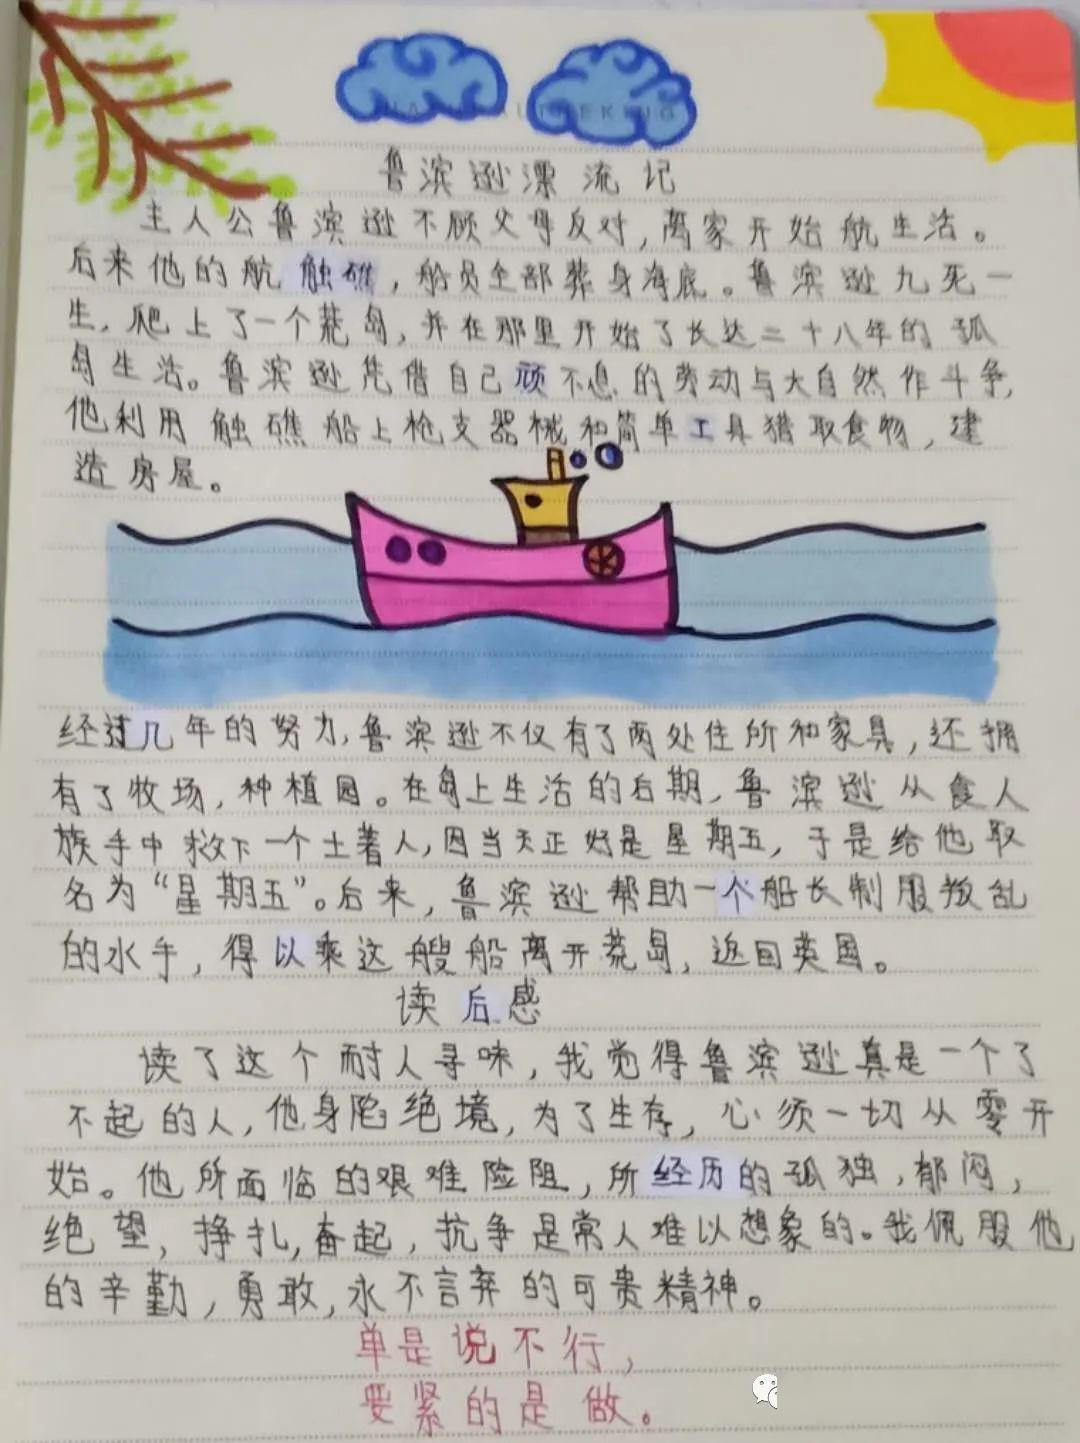 鲁滨逊漂流记
主人公鲁滨逊不顾父母反对,离家开始航生活。
后来他的航触礁,船员全部葬身海底。鲁滨逊九死一
生,爬上了一个荒岛,并在那里开始了长达二十八年的孤
岛生活。鲁滨逊凭借自己顽不息的劳动与大自然作斗争,
他利用触礁船上枪支器械和简单工具猎取食物,建
造房屋。
经过几年的努力,鲁滨逊不仅有了两处住所和家具,还拥
有了牧场,种植园。在岛上生活的后期,鲁滨逊从食人
族手中救下一个土著人,因当天正好是星期五,于是给他取
名为“星期五”。后来,鲁滨逊帮助一个船长制服叛乱
的水手,得以乘这艘船离开荒岛,返回英国。
读后感
读了这个耐人寻味,我觉得鲁滨逊真是一个了
不起的人,他身陷绝境,为了生存,心须一切从零开
始。他所面临的艰难险阻,所经历的孤独,郁闷,
绝望,挣扎,奋起,抗争是常人难以想象的。我佩服他
的辛勤,勇敢,永不言弃的可贵精神。
单是说不行,
要紧的是做。